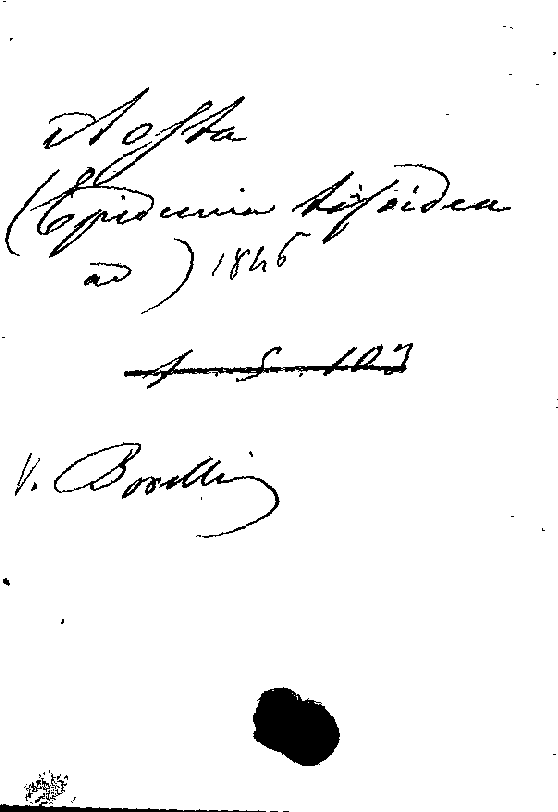 Aosta
(Epidemia tifoidea
ad) 1846
1. 5. 103
V. Borelli